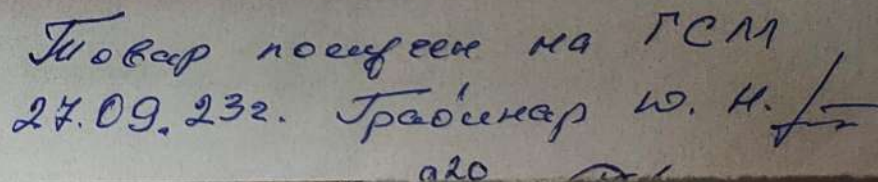 Товар получен на ГСМ
27.09.23г. Грабинар Ю. Н.
а20